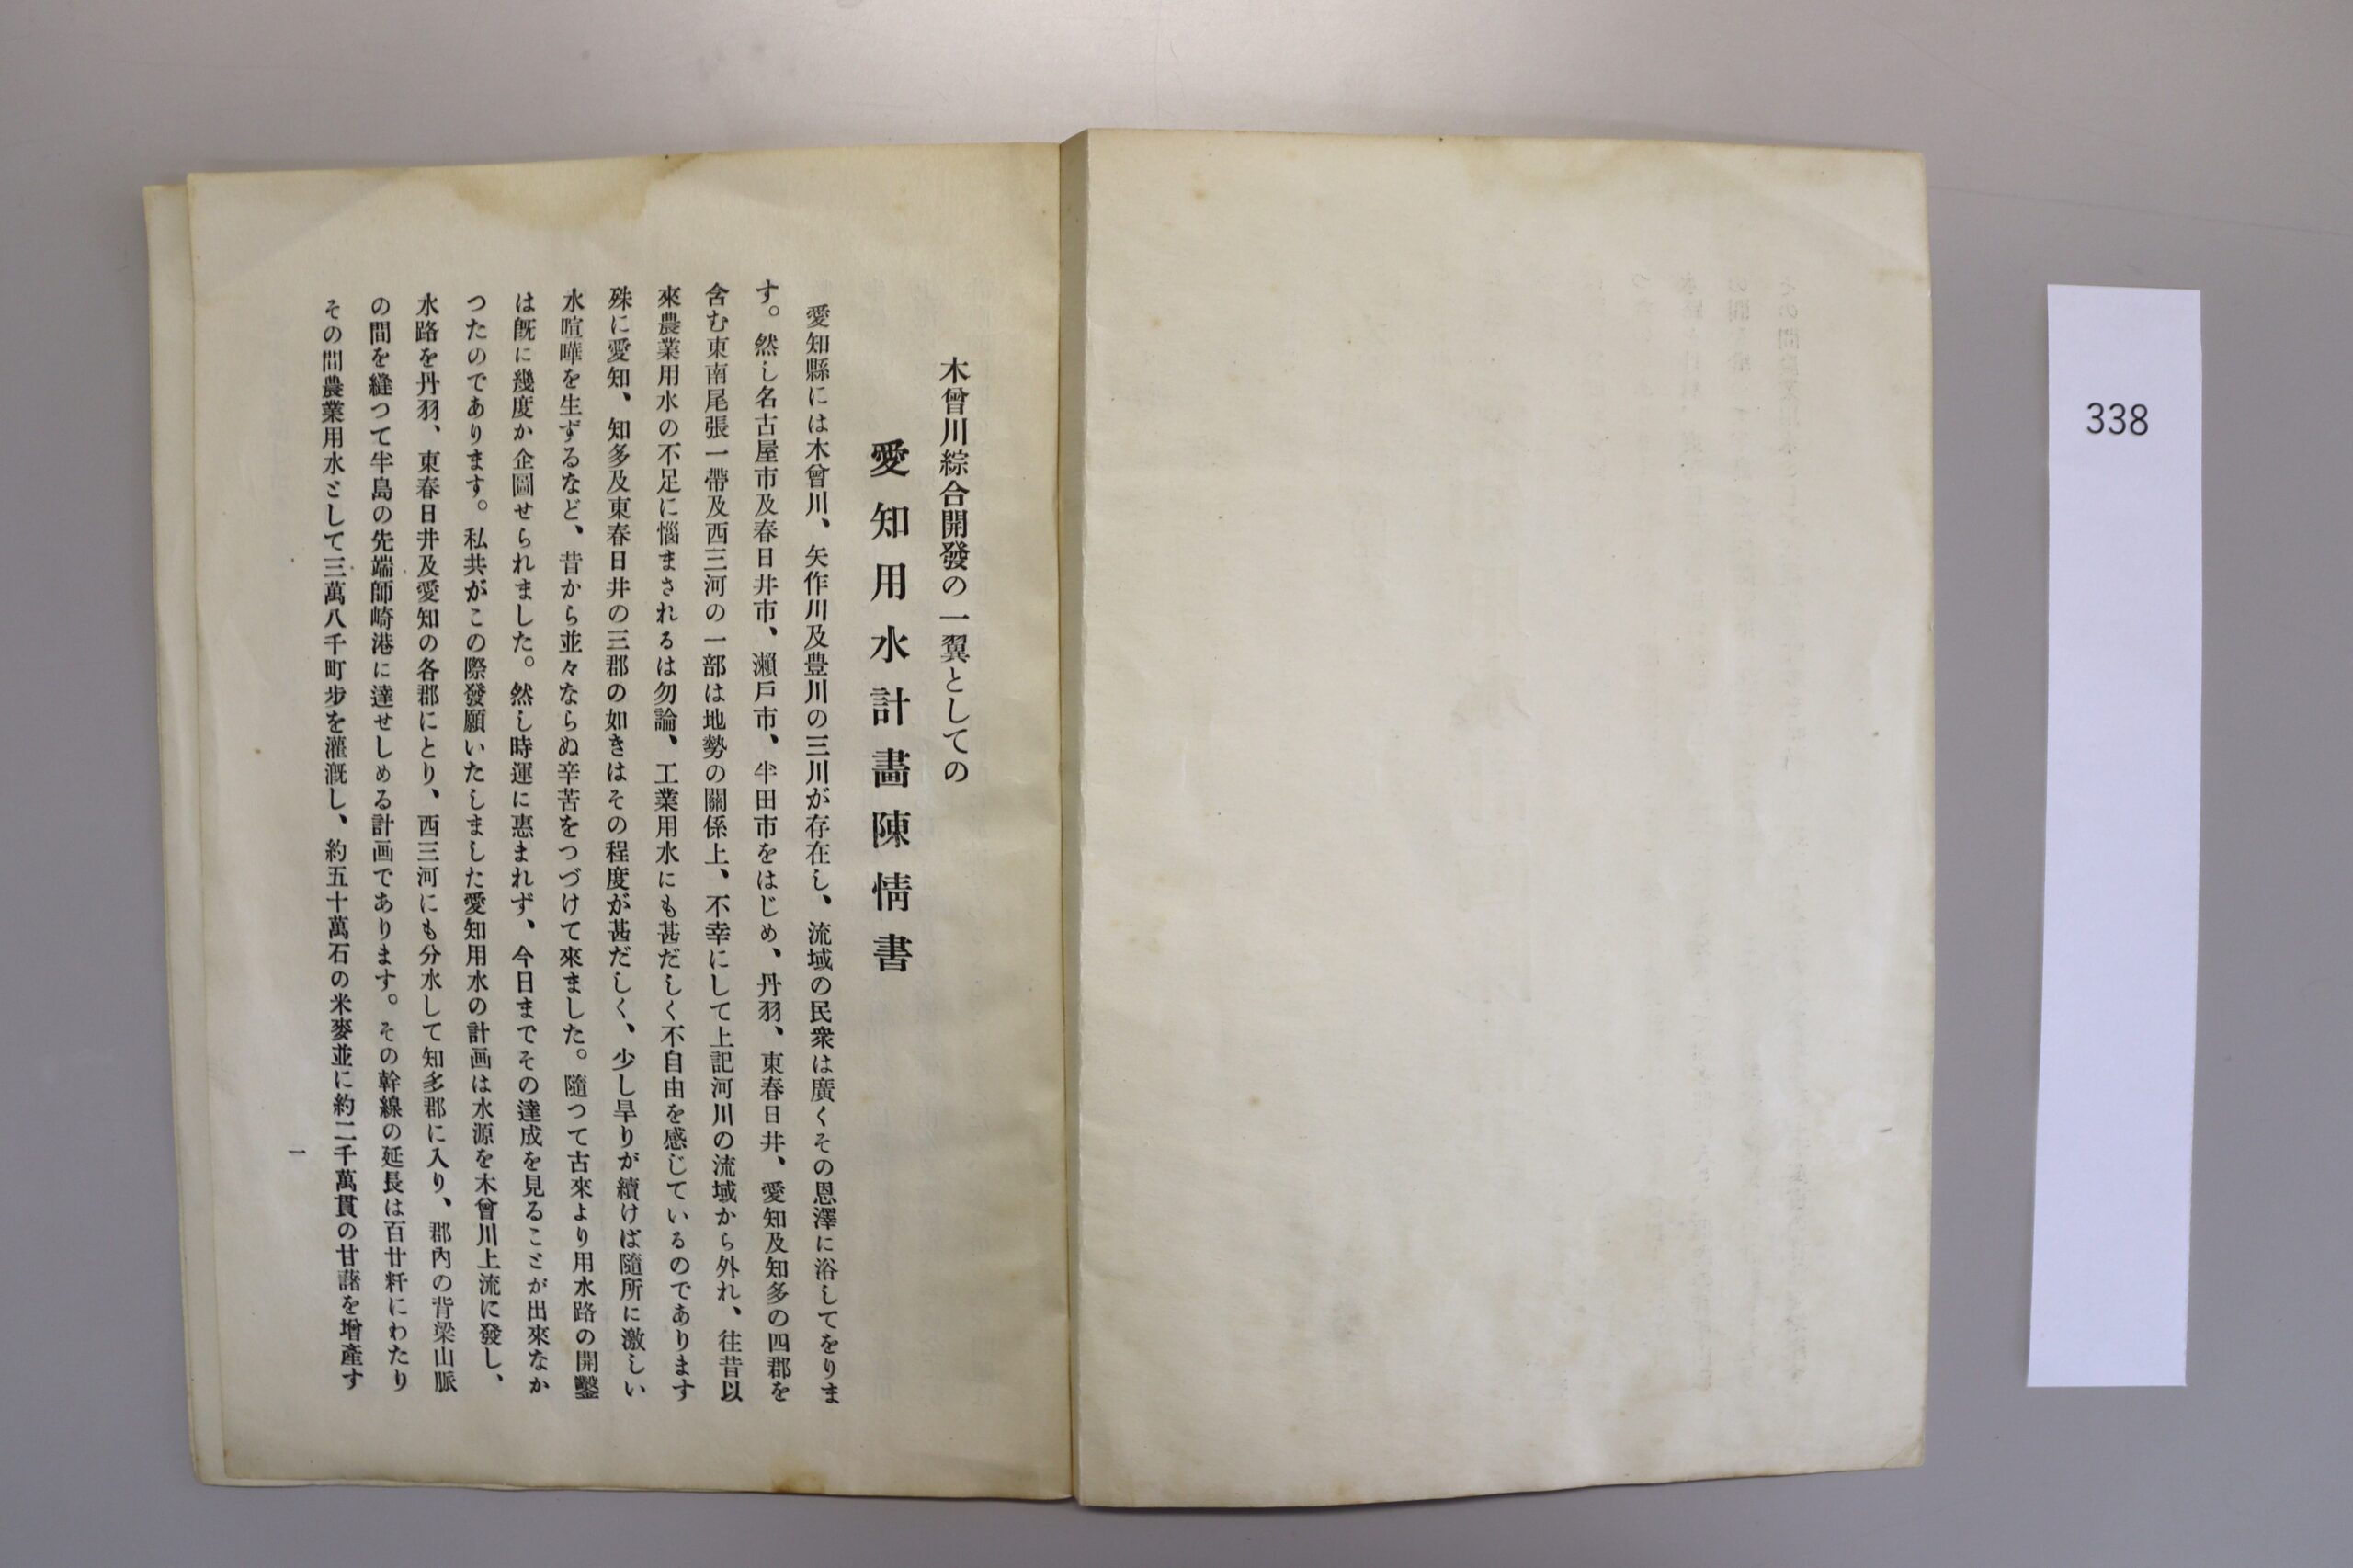 木曾川綜合開發の一翼としての
愛知用水計畫陳情書
愛知縣には木曾川、矢作川及豊川の三川が存在し、流域の民衆は廣くその恩澤に浴してをりま
す。然し名古屋市及春日井市、瀬戸市、半田市をはじめ、丹羽、東春日井、愛知及知多の四郡を
含む東南尾張一帶及西三河の一部は地勢の關係上、不幸にして上記河川の流域から外れ、往昔以
來農業用水の不足に惱まされるは勿論、工業用水にも甚だしく不自由を感じているのであります
殊に愛知、知多及東春日井の三郡の如きはその程度が甚だしく、少し旱りが續けば隨所に激しい
水喧嘩を生ずるなど、昔から並々ならぬ辛苦をつづけて來ました。隨つて古來より用水路の開鑿
は旣に幾度か企圖せられました。然し時運に惠まれず、今日までその達成を見ることが出來なか
つたのであります。私共がこの際發願いたしました愛知用水の計画は水源を木曾川上流に發し、
水路を丹羽、東春日井及愛知の各郡にとり、西三河にも分水して知多郡に入り、郡內の背梁山脈
の間を縫つて半島の先端師崎港に達せしめる計画であります。その幹線の延長は百廿粁にわたり
その間農業用水として三萬八千町步を灌漑し、約五十萬石の米麥並に約二千萬貫の甘藷を增產す
一
338